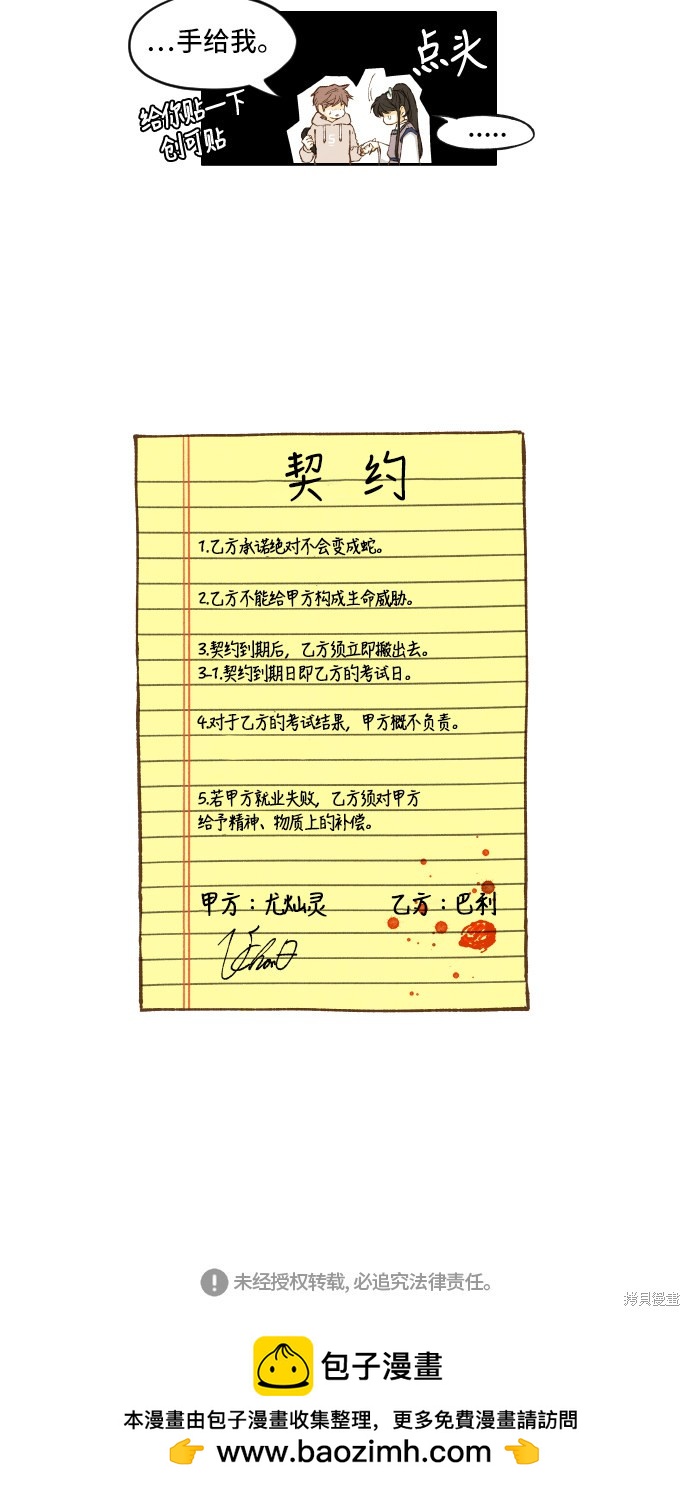 ...手给我。
点头
给你贴一下
创可贴
.....
契约
1.乙方承诺绝对不会变成蛇。
2.乙方不能给甲方构成生命威胁。
3.契约到期后，乙方须立即搬出去。
3-1.契约到期日即乙方的考试日。
4.对于乙方的考试结果，甲方概不负责。
5.若甲方就业失败，乙方须对甲方
给予精神、物质上的补偿。
甲方：尤灿灵 乙方：巴利
未经授权转载，必追究法律责任。
拷貝漫畫
包子漫畫
本漫畫由包子漫畫收集整理，更多免費漫畫請訪問
www.baozimh.com